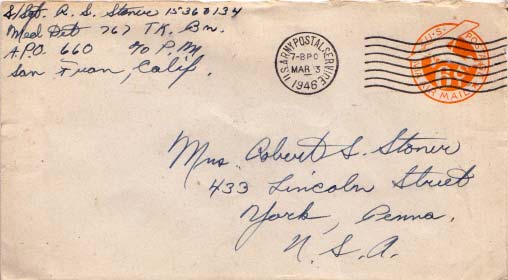 S/Sgt. R. S. Stoner 15360134
Med Det 767 TK. Bn.
A.P.O. 660 c/o P.M.
San Fran, Calif.
U.S. ARMY POSTAL SERVICE
7-BPO
MAR 3
1946
U.S. POSTAGE
AIR MAIL
Mrs. Robert S. Stoner
433 Lincoln Street
York, Penna.
U. S. A.